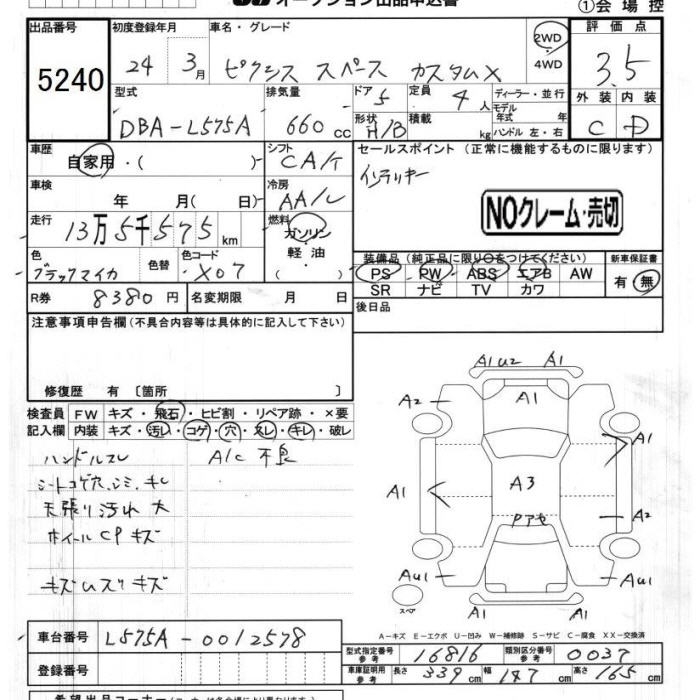 オークション出品申込書
①会場控
出品番号
5240
初度登録年月
24 3月
車名・グレード
ピクシス スペース カスタムX
2WD
・4WD
評価点
3.5
外装 内装
C D
型式
DBA-L575A
排気量
660 cc
ドア 5
定員 4 人
ディーラー・並行
形状 H/B
積載 kg
モデル年式 年
ハンドル 左・右
車歴
自家用・( )
シフト
CA/T
セールスポイント (正常に機能するものに限ります)
インテリキー
車検
年 月( 日)
冷房
AA/C
NOクレーム・売切
走行
13万5千575 km
燃料
ガソリン
軽油
色
ブラックマイカ
色替
色コード
X07
装備品 (純正品に限り○をつけてください)
PS PW ABS エアB AW
SR ナビ TV カワ
新車保証書
有・無
R券 8380 円
名変期限 月 日
後日品
注意事項申告欄(不具合内容等は具体的に記入して下さい)
修復歴 有 〔箇所 〕
検査員記入欄
FW キズ・飛石・ヒビ割・リペア跡・×要
内装 キズ・汚レ・コゲ・穴・スレ・キレ・破レ
ハンドルスレ A/C 不良
シートコゲ穴、シミ、キレ
天張り汚れ 大
ホイールCPキズ
A1U2 A1
A2 A1
A1
A1 A3 A2
Pアセ
AU1 AU1
スペア
A1 A1
A-キズ E-エクボ U-凹み W-補修跡 S-サビ C-腐食 XX-交換済
車台番号
L575A-0012578
登録番号
型式指定番号 参考 16816
類別区分番号 参考 0037
車庫証明用 参考 長さ 339 cm 幅 147 cm 高さ 165 cm
希望出品コーナー